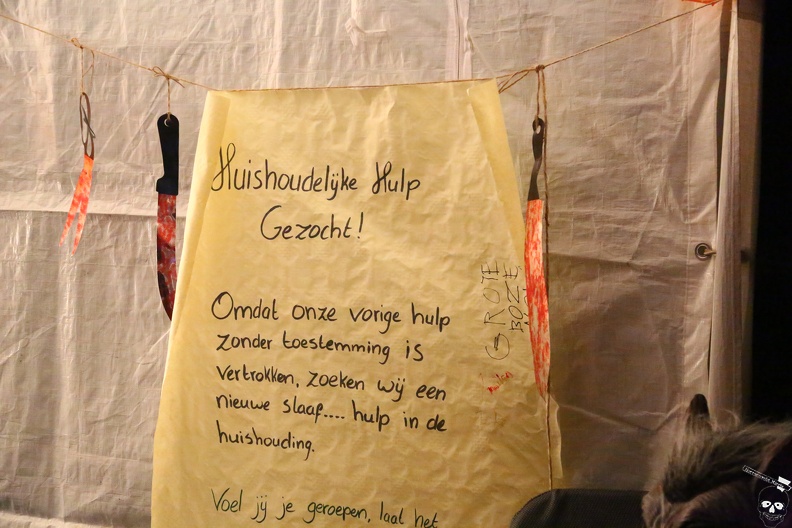 Huishoudelijke Hulp
Gezocht!
Omdat onze vorige hulp
zonder toestemming is
vertrokken, zoeken wij een
nieuwe slaaf.... hulp in de
huishouding.
Voel jij je geroepen, laat het
GROTE
BOZE